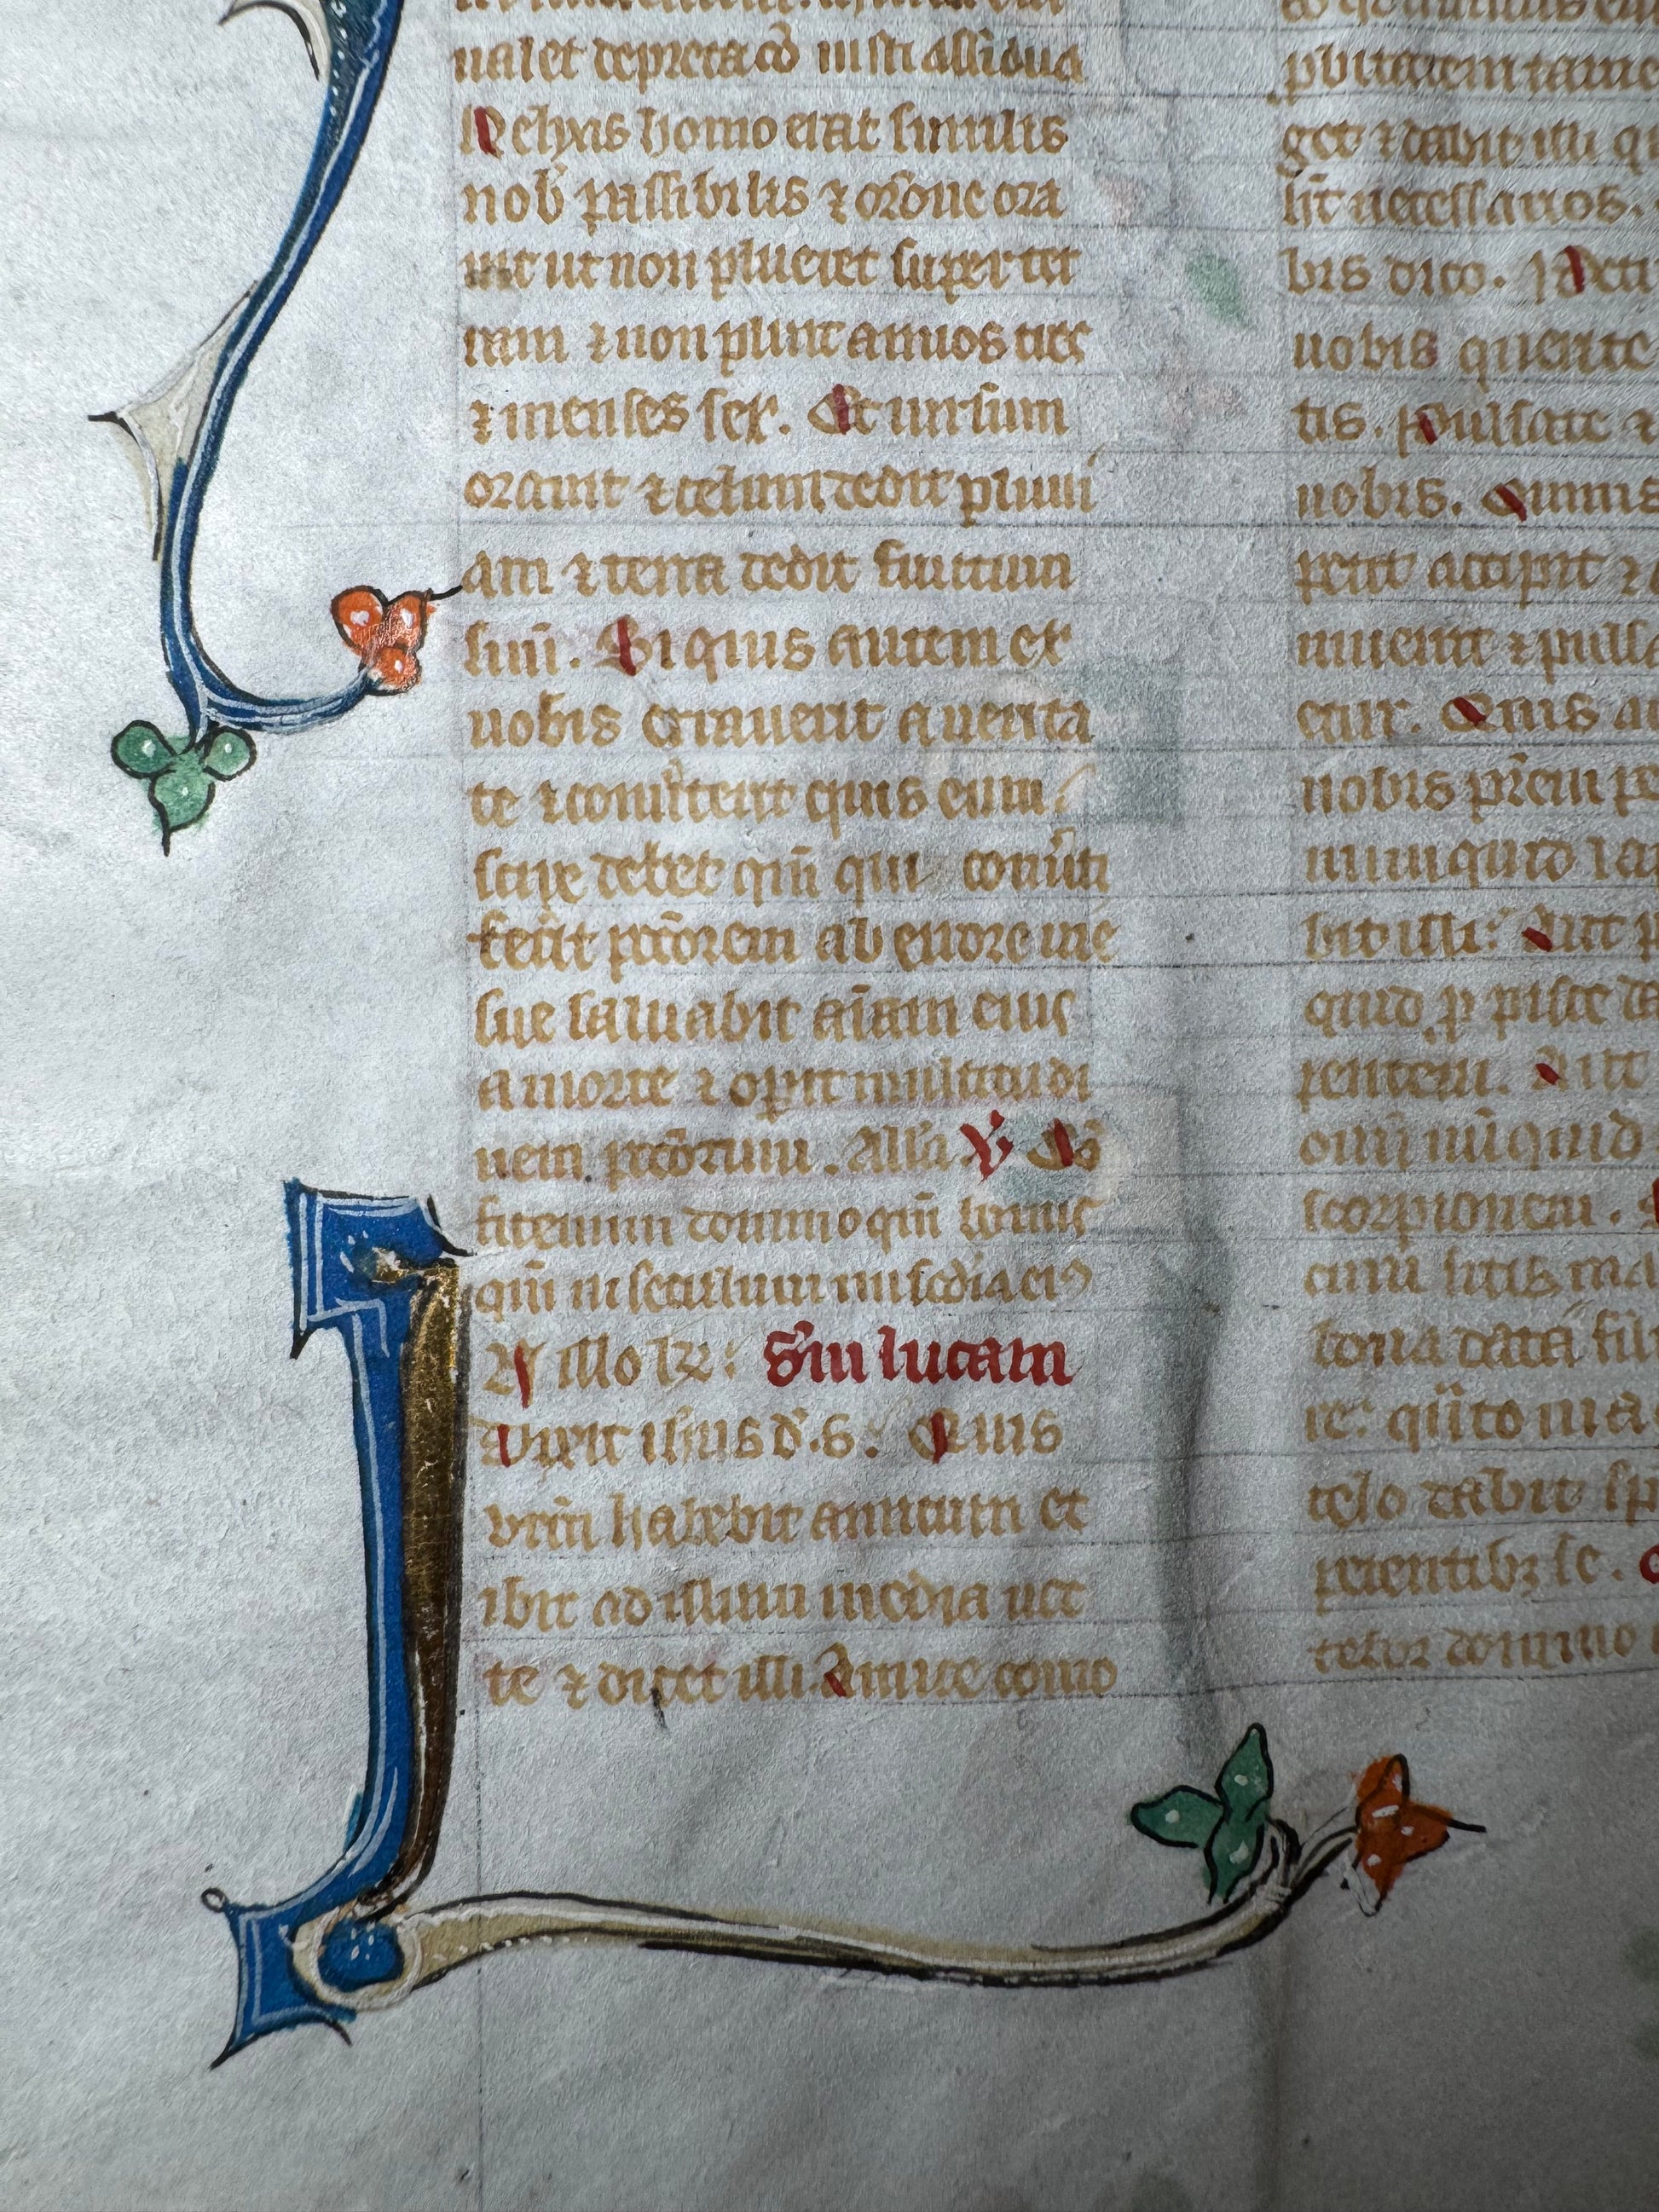 ualet depreca cō iusti assidua
Helyas homo erat similis
nob̄ passibilis ⁊ or̄one ora
uit ut non plueret super ter
ram ⁊ non pluit annos tres
⁊ menses sex. Et rursum
orauit ⁊ celum dedit pluui
am ⁊ terra dedit fructum
suū. Si quis autem ex
uobis errauerit a uerita
te ⁊ conuͥterit quis eum
scire debet qm̄ qui conuͥti
fecͥit pcc̄orem ab errore uie
sue saluabit aīam eius
a morte ⁊ opͥit multitudi
nem pcc̄orum. Alla ℣ Cō
fitemini domino qm̄ bonus
qm̄ in seculum mis̄cdia eiꝰ
In illo t̄ꝛ: Sm̄ lucam
dixit ih̄us d.s: Quis
vrm̄ habebit amicum et
ibit ad illum media noc
te ⁊ dicet illi. Amice como
pbitatem tamen
get ⁊ dabit illi
h̄t necessarios.
bis dico. Peti
uobis querite
tis. Pulsate ⁊
uobis. Omnis
petit accipit ⁊
inuenit ⁊
etur. Quis
uobis pr̄em
numquid
bit illi: Aut
quid ꝓ pisce
pentem. Aut
ouū nūquid
scorpionem.
cum sitis ma
bona data fili
re: qͣnto ma
celo dabit
petentibꝫ se.
domino